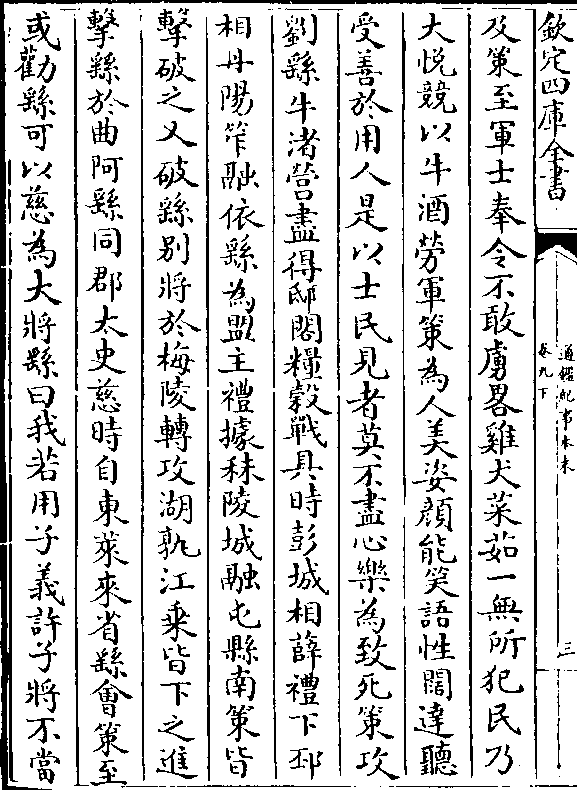 欽定四庫全書
通鑑紀事本末
卷九下
三
及策至軍士奉令不敢虜畧雞犬菜茹一無所犯民乃
大悅競以牛酒勞軍策為人美姿顔能笑語性闊達聽
受善於用人是以士民見者莫不盡心樂為致死策攻
劉繇牛渚營盡得邸閣糧穀戰具時彭城相薛禮下邳
相丹陽笮融依繇為盟主禮據秣陵城融屯縣南策皆
擊破之又破繇别將於梅陵轉攻湖孰江乗皆下之進
擊繇於曲阿繇同郡太史慈時自東萊來省繇會策至
或勸繇可以慈為大將繇曰我若用子義許子將不當